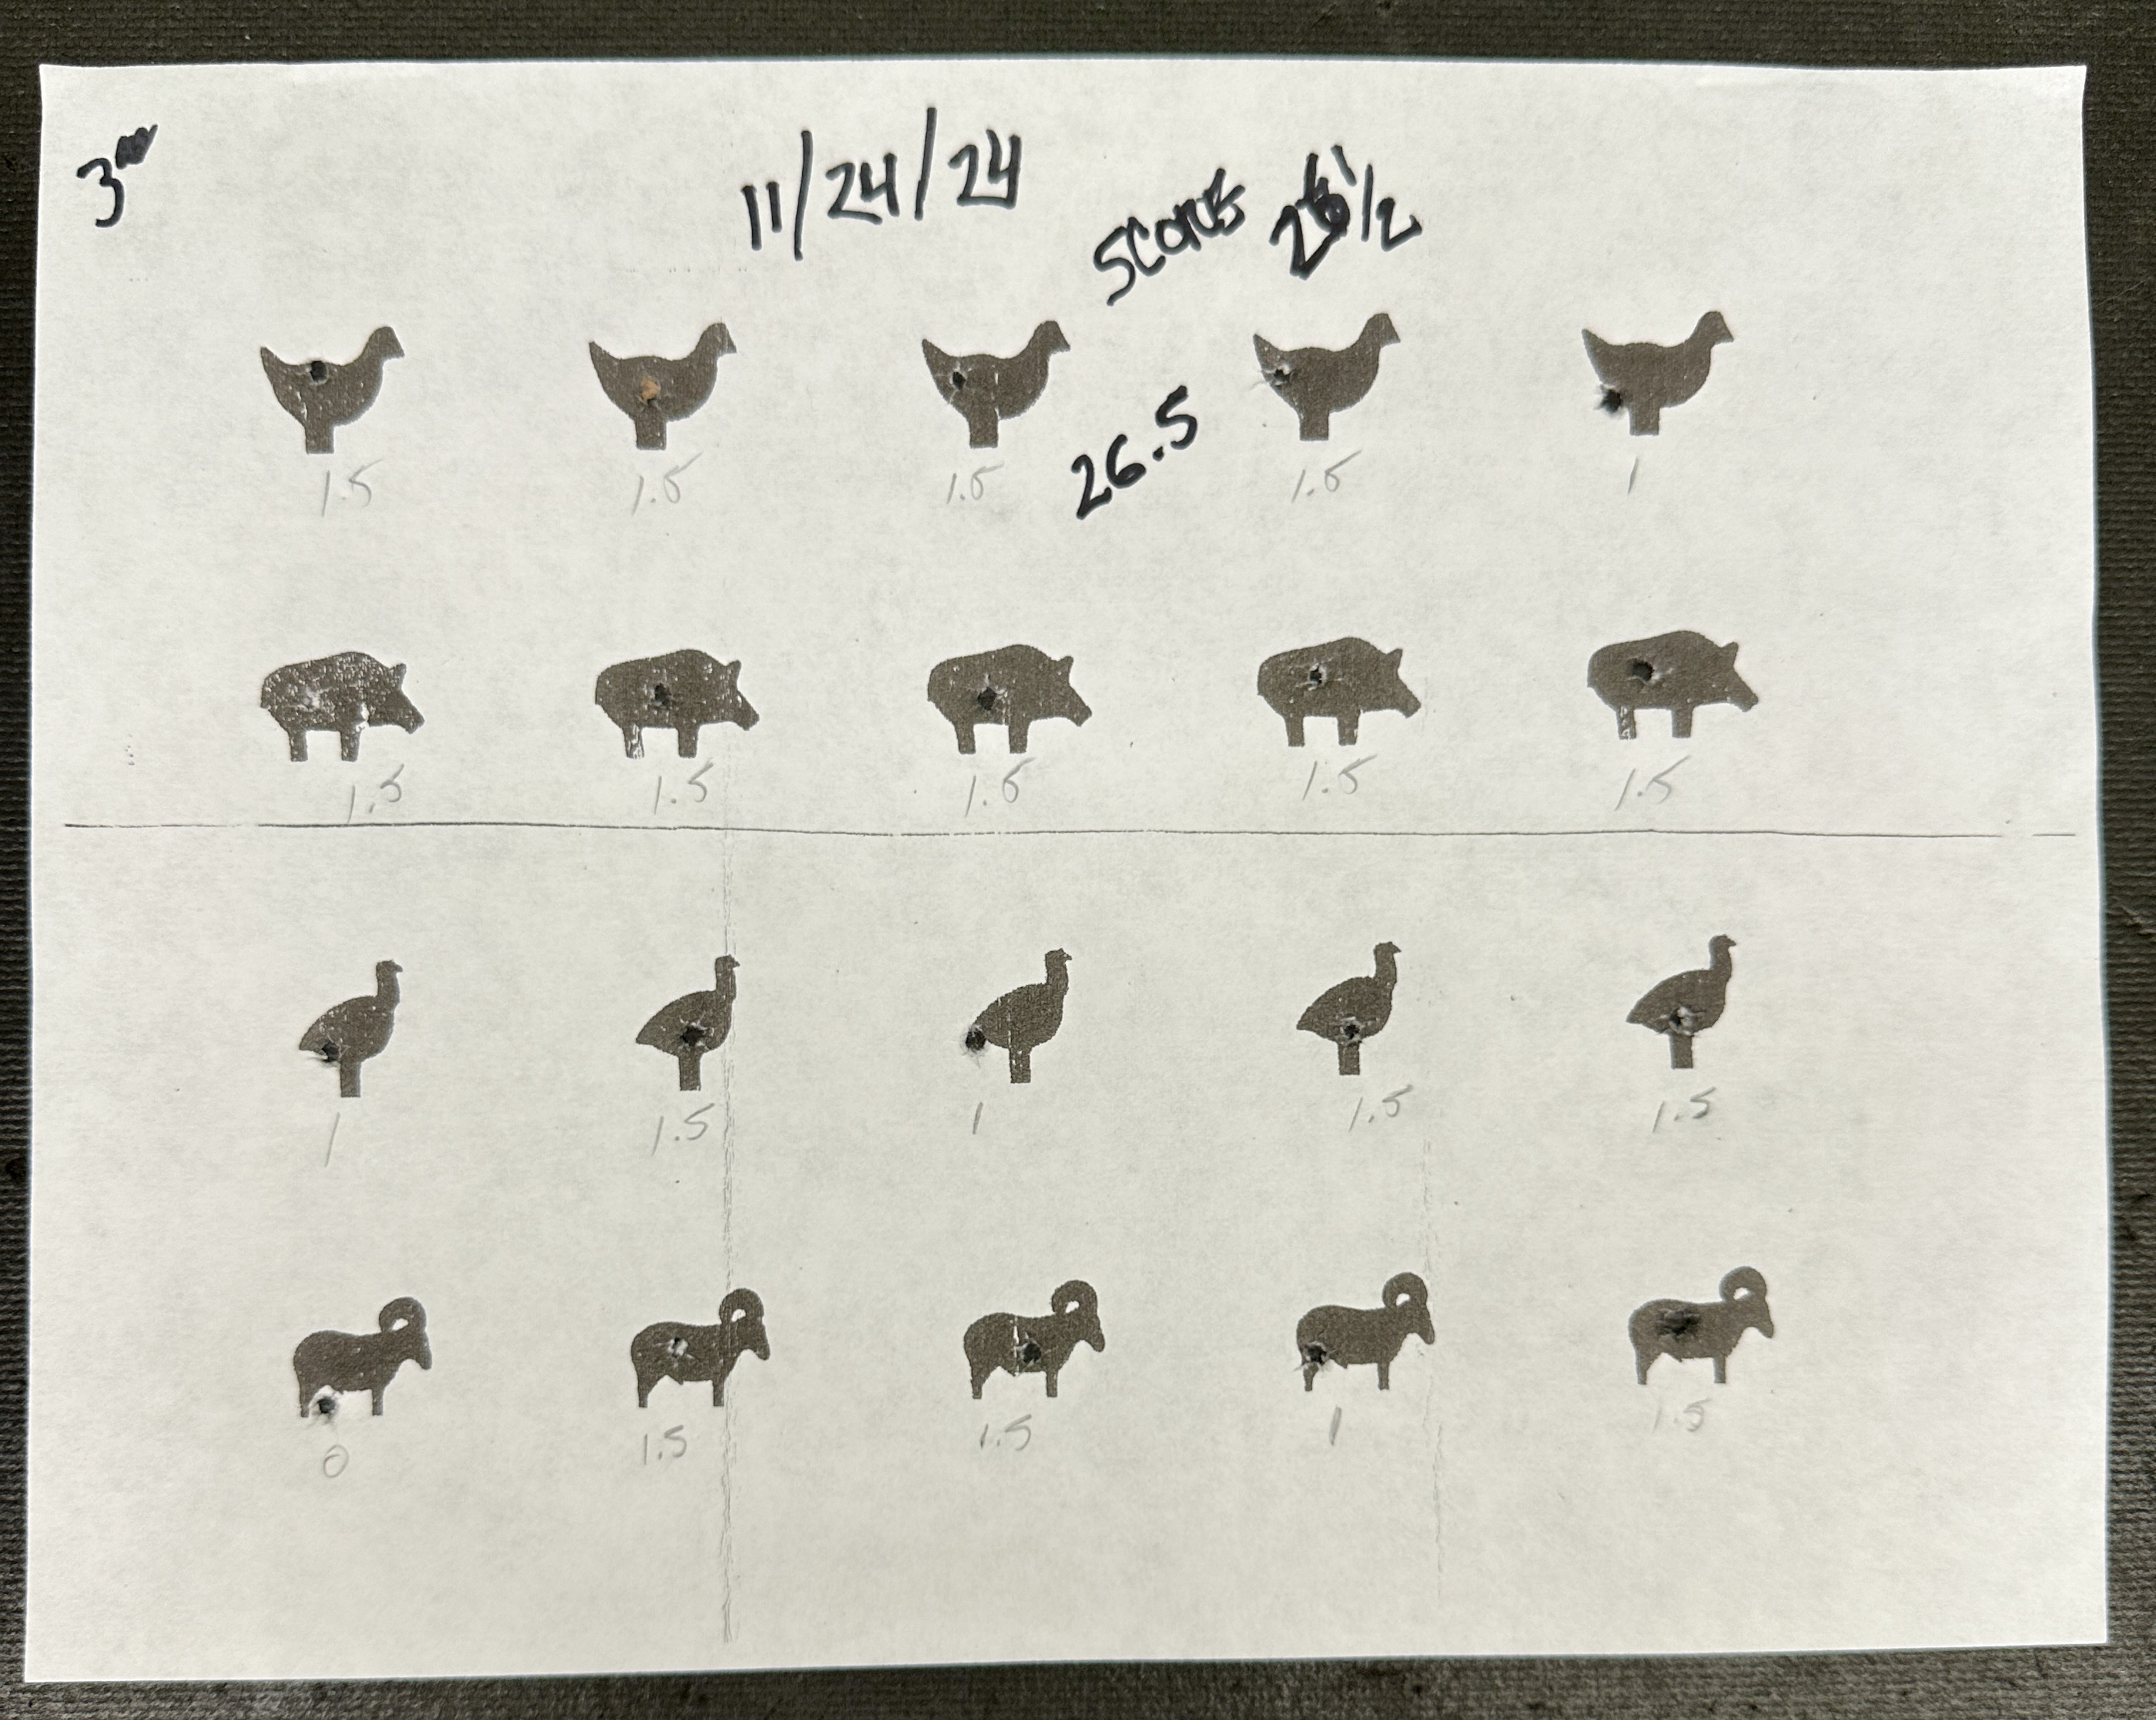 3
11/24/24
SCORE 26 1/2
26.5
1.5 1.5 1.5 1.5 1
1.5 1.5 1.5 1.5 1.5
1 1.5 1 1.5 1.5
0 1.5 1.5 1 1.5